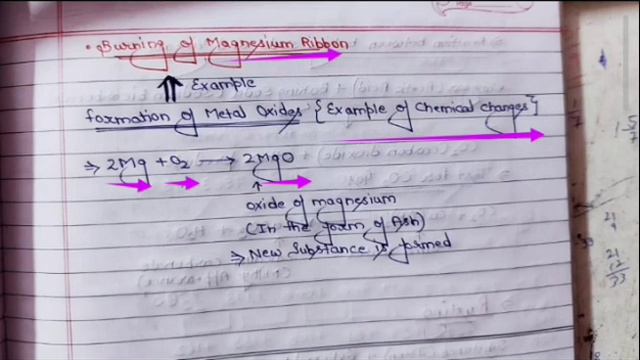 • Burning of Magnesium Ribbon
Example
formation of Metal Oxides {Example of Chemical changes}
⇒ 2Mg + O₂ → 2MgO
oxide of magnesium
(In the form of Ash)
⇒ New Substance is formed